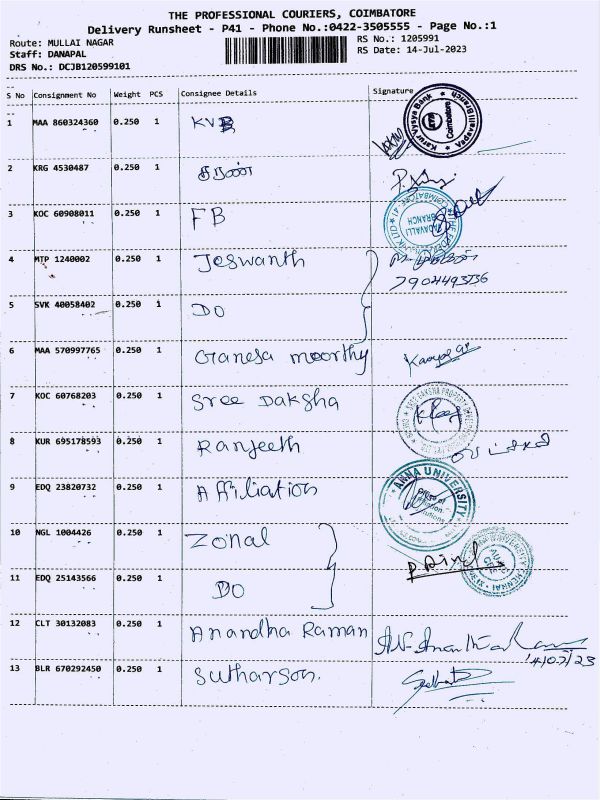 THE PROFESSIONAL COURIERS, COIMBATORE
Delivery Runsheet - P41 - Phone No.:0422-3505555 - Page No.:1
Route: MULLAI NAGAR RS No.: 1205991
Staff: DANAPAL RS Date: 14-Jul-2023
DRS No.: DCJB120599101
S No Consignment No Weight PCS Consignee Details Signature
1 MAA 860324360 0.250 1 KVB
Karur Vysya Bank Coimbatore
2 KRG 4530487 0.250 1 சரண்
3 KOC 60908011 0.250 1 FB
BRANCH
4 MTP 1240002 0.250 1 Jeswanth
5 SVK 40058402 0.250 1 DO
6 MAA 570997765 0.250 1 Ganesa moorthy
7 KOC 60768203 0.250 1 Sree Daksha
8 KUR 695178593 0.250 1 Ranjeeth
9 EDQ 23820732 0.250 1 Affiliation
ANNA UNIVERSITY
10 NGL 1004426 0.250 1 Zonal
11 EDQ 25143566 0.250 1 DO
12 CLT 30132083 0.250 1 Anandha Raman
14/07/23
13 BLR 670292450 0.250 1 Sutharson.